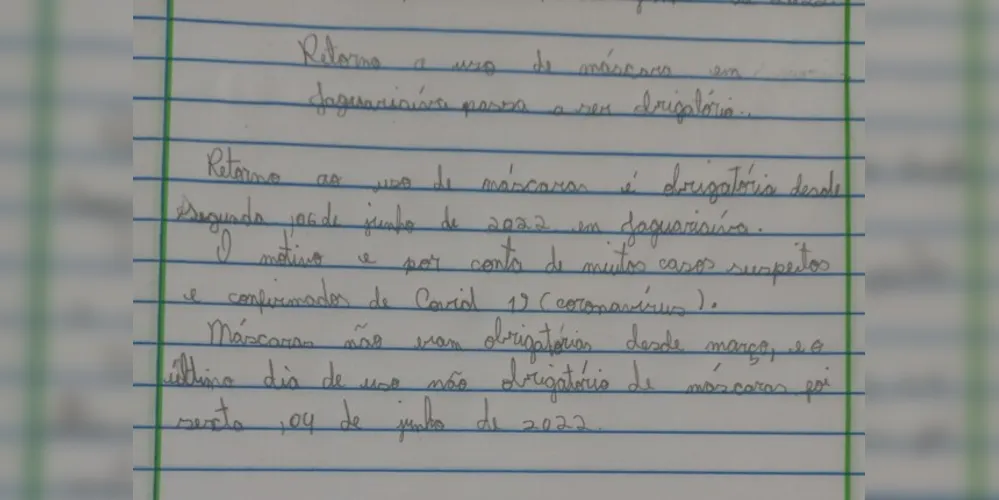 Retorno a uso de máscara em
Jaguariaíva passa a ser obrigatório.
Retorno ao uso de máscaras é obrigatório desde
segunda ,06 de junho de 2022 em Jaguariaíva.
O motivo e por conta de muitos casos suspeitos
e confirmados de Covid 19 (coronavírus).
Máscaras não eram obrigatórias desde março, e o
último dia de uso não obrigatório de máscaras foi
sexta ,04 de junho de 2022.